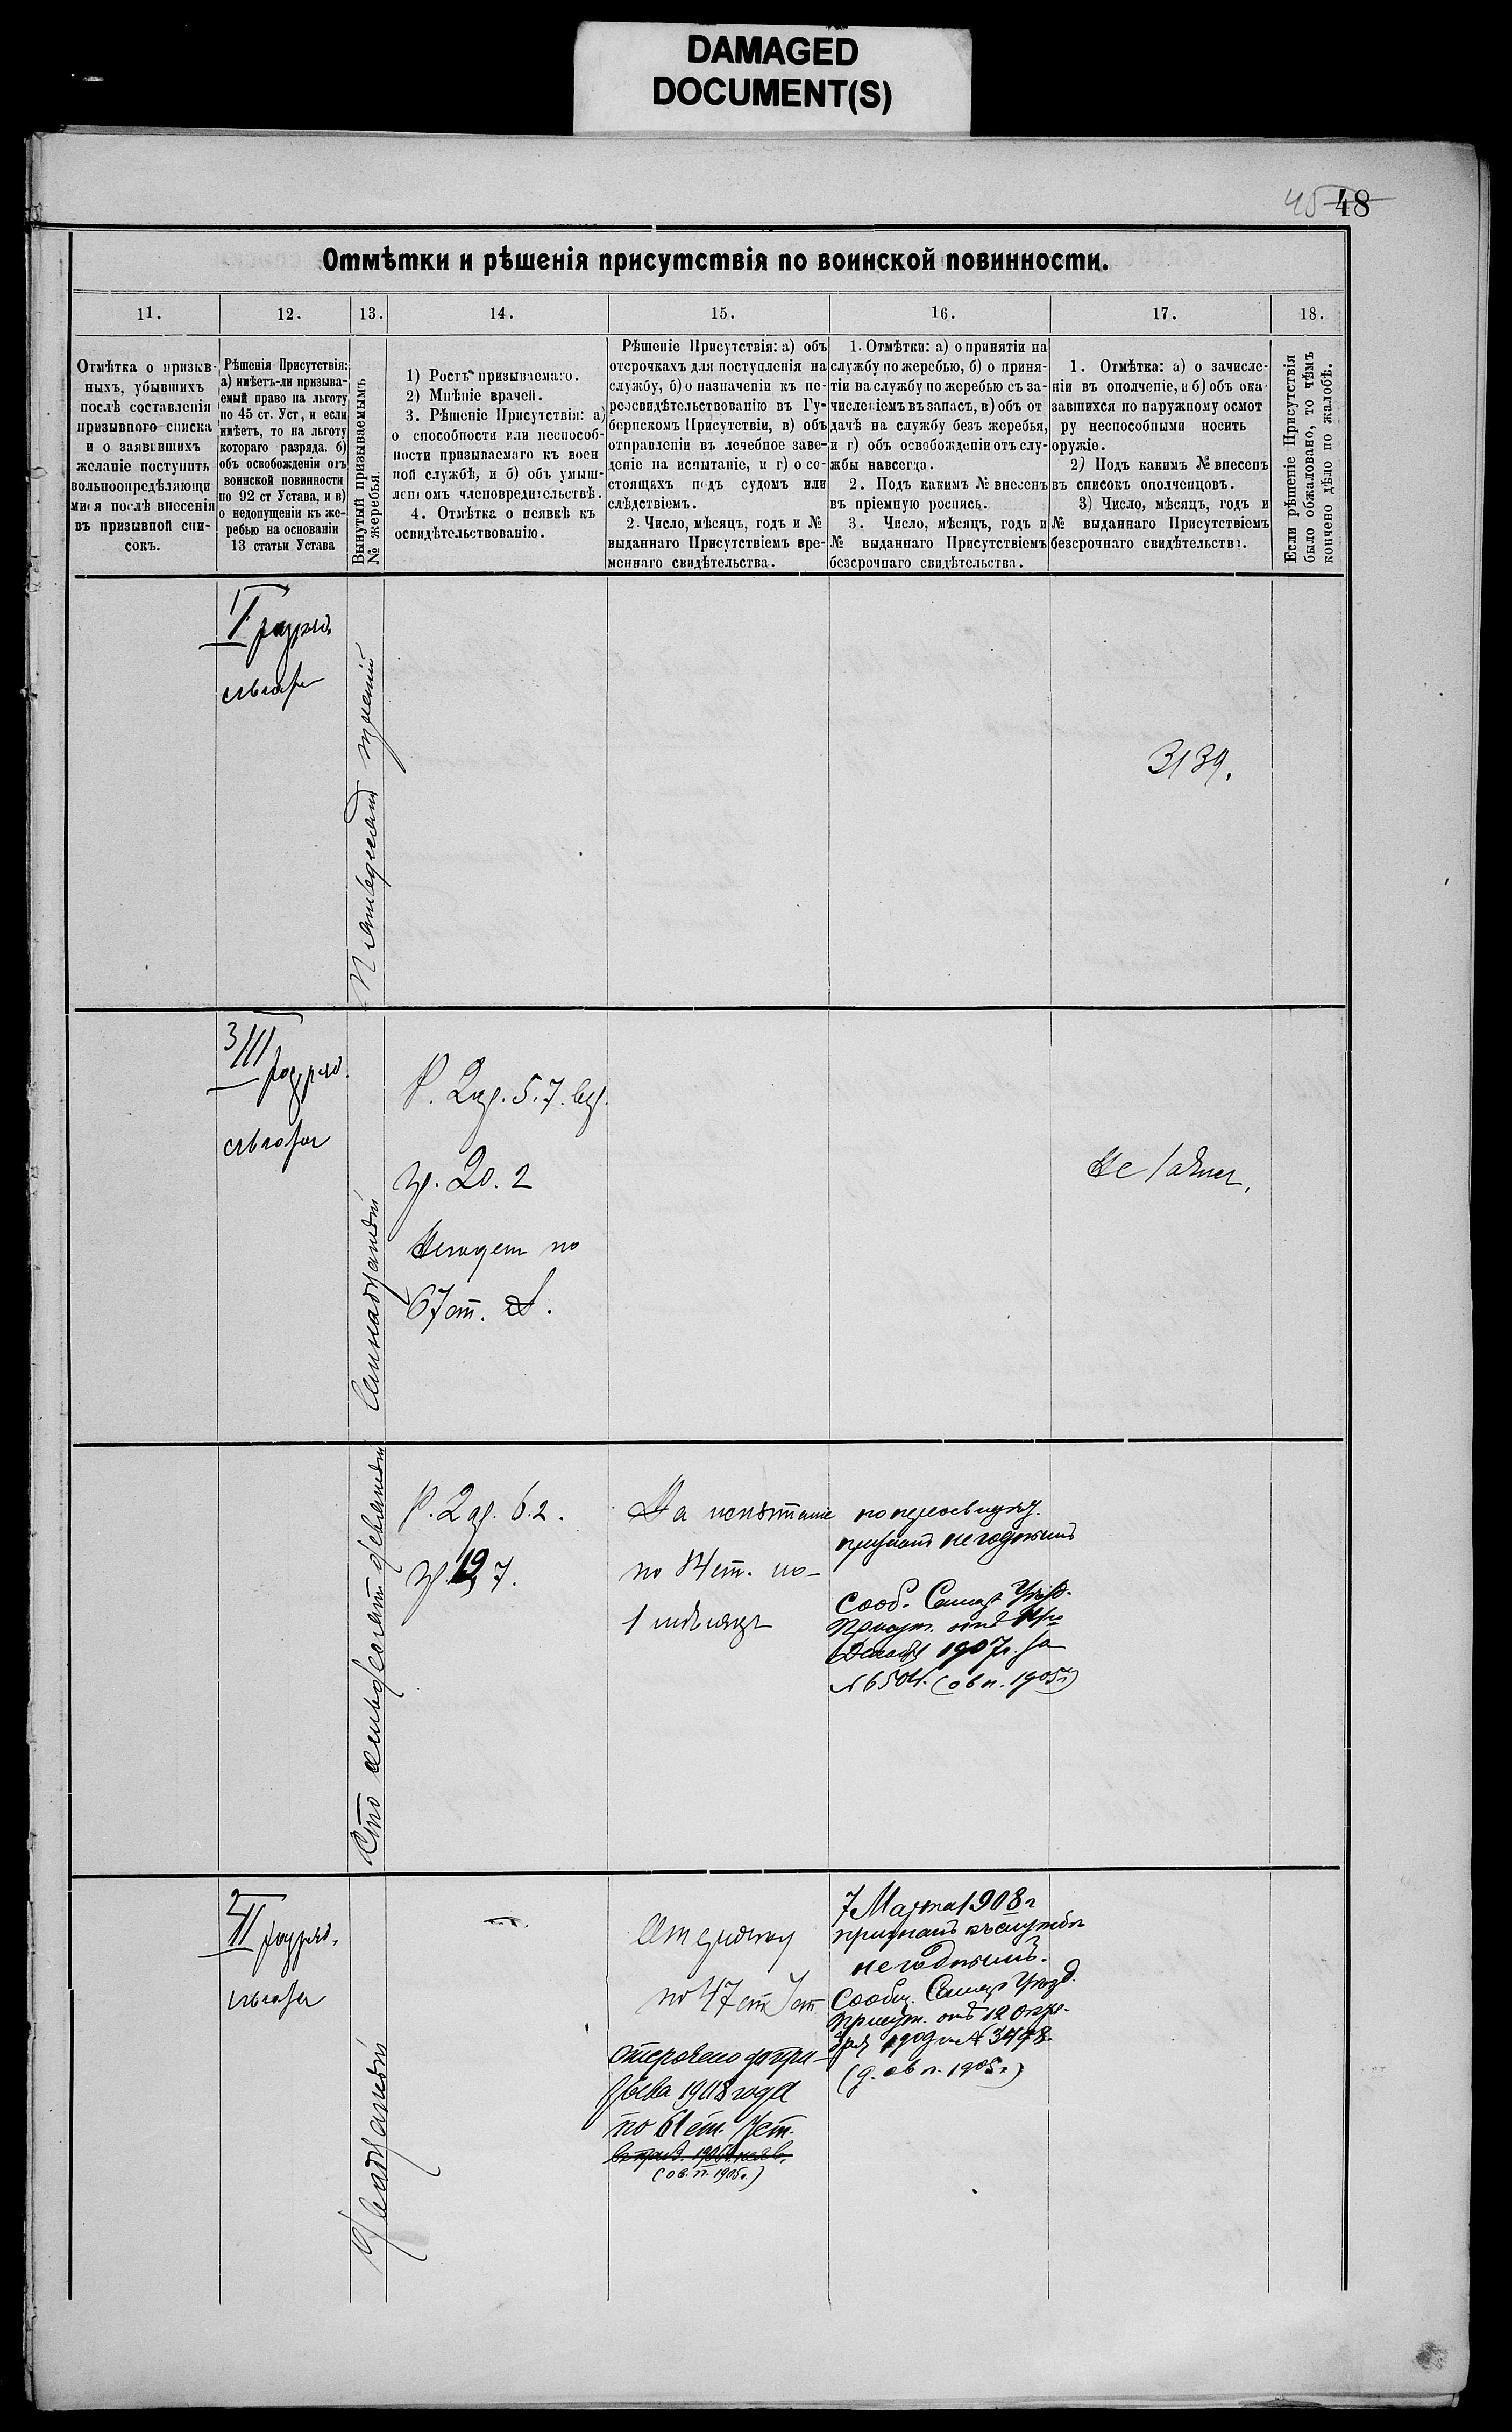 DAMAGED
DOCUMENT(S)
45 48
Отмѣтки и рѣшенія присутствія по воинской повинности.
11.
12.
13.
14.
15.
16.
17.
18.
Отмѣтка о призыв-
ныхъ, убывшихъ
послѣ составленія
призывного списка
и о заявившихъ
желаніе поступить
вольноопредѣляющи
мися послѣ внесенія
въ призывной спи-
сокъ.
Рѣшенія Присутствія:
а) имѣетъ-ли призыва-
емый право на льготу
по 45 ст. Уст, и если
имѣетъ, то на льготу
котораго разряда. б)
объ освобожденіи отъ
воинской повинности
по 92 ст Устава, и в)
о недопущеніи къ же-
ребью на основаніи
13 статьи Устава
Вынутый призываемымъ
№ жеребья.
1) Ростъ призываемаго.
2) Мнѣніе врачей.
3. Рѣшеніе Присутствія: а)
о способности или неспособ-
ности призываемаго къ воен
ной службѣ, и б) объ умыш-
леномъ членовредительствѣ.
4. Отмѣтка о неявкѣ къ
освидѣтельствованію.
Рѣшеніе Присутствія: а) объ
отсрочкахъ для поступленія на
службу, б) о назначеніи къ пе-
реосвидѣтельствованію въ Гу-
бернскомъ Присутствіи, в) объ
отправленіи въ лечебное заве-
деніе на испытаніе, и г) о со-
стоящихъ подъ судомъ или
слѣдствіемъ.
2. Число, мѣсяцъ, годъ и №
выданнаго Присутствіемъ вре-
меннаго свидѣтельства.
1. Отмѣтки: а) о принятіи на
службу по жеребью, б) о приня-
тіи на службу по жеребью съ за-
численіемъ въ запасъ, в) объ от
дачѣ на службу безъ жеребья,
и г) объ освобожденіи отъ слу-
жбы навсегда.
2. Подъ какимъ № внесенъ
въ пріемную роспись.
3. Число, мѣсяцъ, годъ и
№ выданнаго Присутствіемъ
безсрочнаго свидѣтельства.
1. Отмѣтка: а) о зачисле-
ніи въ ополченіе, и б) объ ока
завшихся по наружному осмот
ру неспособными носить
оружіе.
2) Подъ какимъ № внесенъ
въ списокъ ополченцовъ.
3) Число, мѣсяцъ, годъ и
№ выданнаго Присутствіемъ
безсрочнаго свидѣтельства.
Если рѣшеніе Присутствія
было обжаловано, то чѣмъ
кончено дѣло по жалобѣ.
I разряд.
3139.
3 III разряд.
Семнадцатый
Р. 2 ар. 5.7. вер.
гр. 20. 2
Негоден по
67 ст.
Не
Сто девятый
Р. 2 ар. 6.2.
гр. 19, 7.
На испытаніе
по ст. на
1 мѣсяцъ
по переосвидѣт.
признанъ негоднымъ
Сооб. Самар. Уѣзд.
Присут. отъ
Декабря 1907г. за
№ 6504. (1905г)
2 II разряд.
Двадцатый
Отсрочку
по 47 ст Уст
Отсрочено до при-
зыва 1908 года
по 61 ст. Уст.
(1905г.)
7 Марта 1908 г
признанъ къ службѣ
негоднымъ.
Сообщ. Самар Уѣзд.
Присут. отъ 12
№ 3478.
(1905г.)